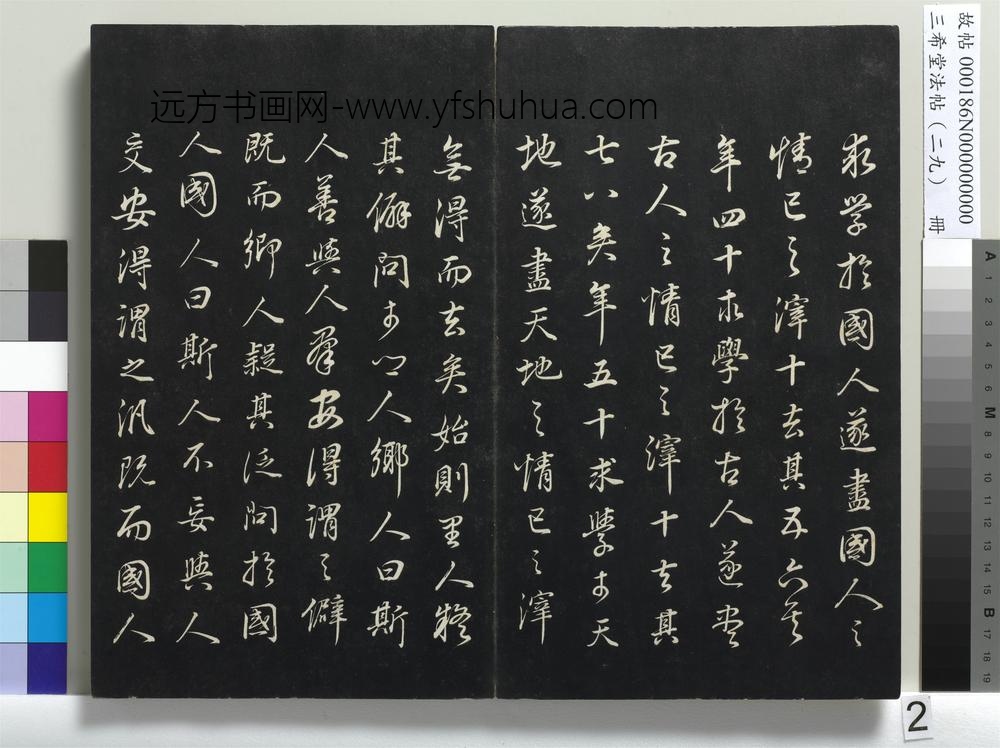 故帖 000186N000000000
三希堂法帖（二九） 冊
远方书画网-www.yfshuhua.com
求學於國人遂盡國人之
情已之滓十去其五六矣
年四十求學於古人遂盡
古人之情已之滓十去其
七八矣年五十求學于天
地遂盡天地之情已之滓
無得而去矣始則里人疑
其僻問于鄉人鄉人曰斯
人善與人群安得謂之僻
既而鄉人疑其泛問於國
人國人曰斯人不妄與人
交安得謂之汎既而國人
A 1 2 3 4 5 6 M 8 9 10 11 12 13 14 15 B 17 18 19
2